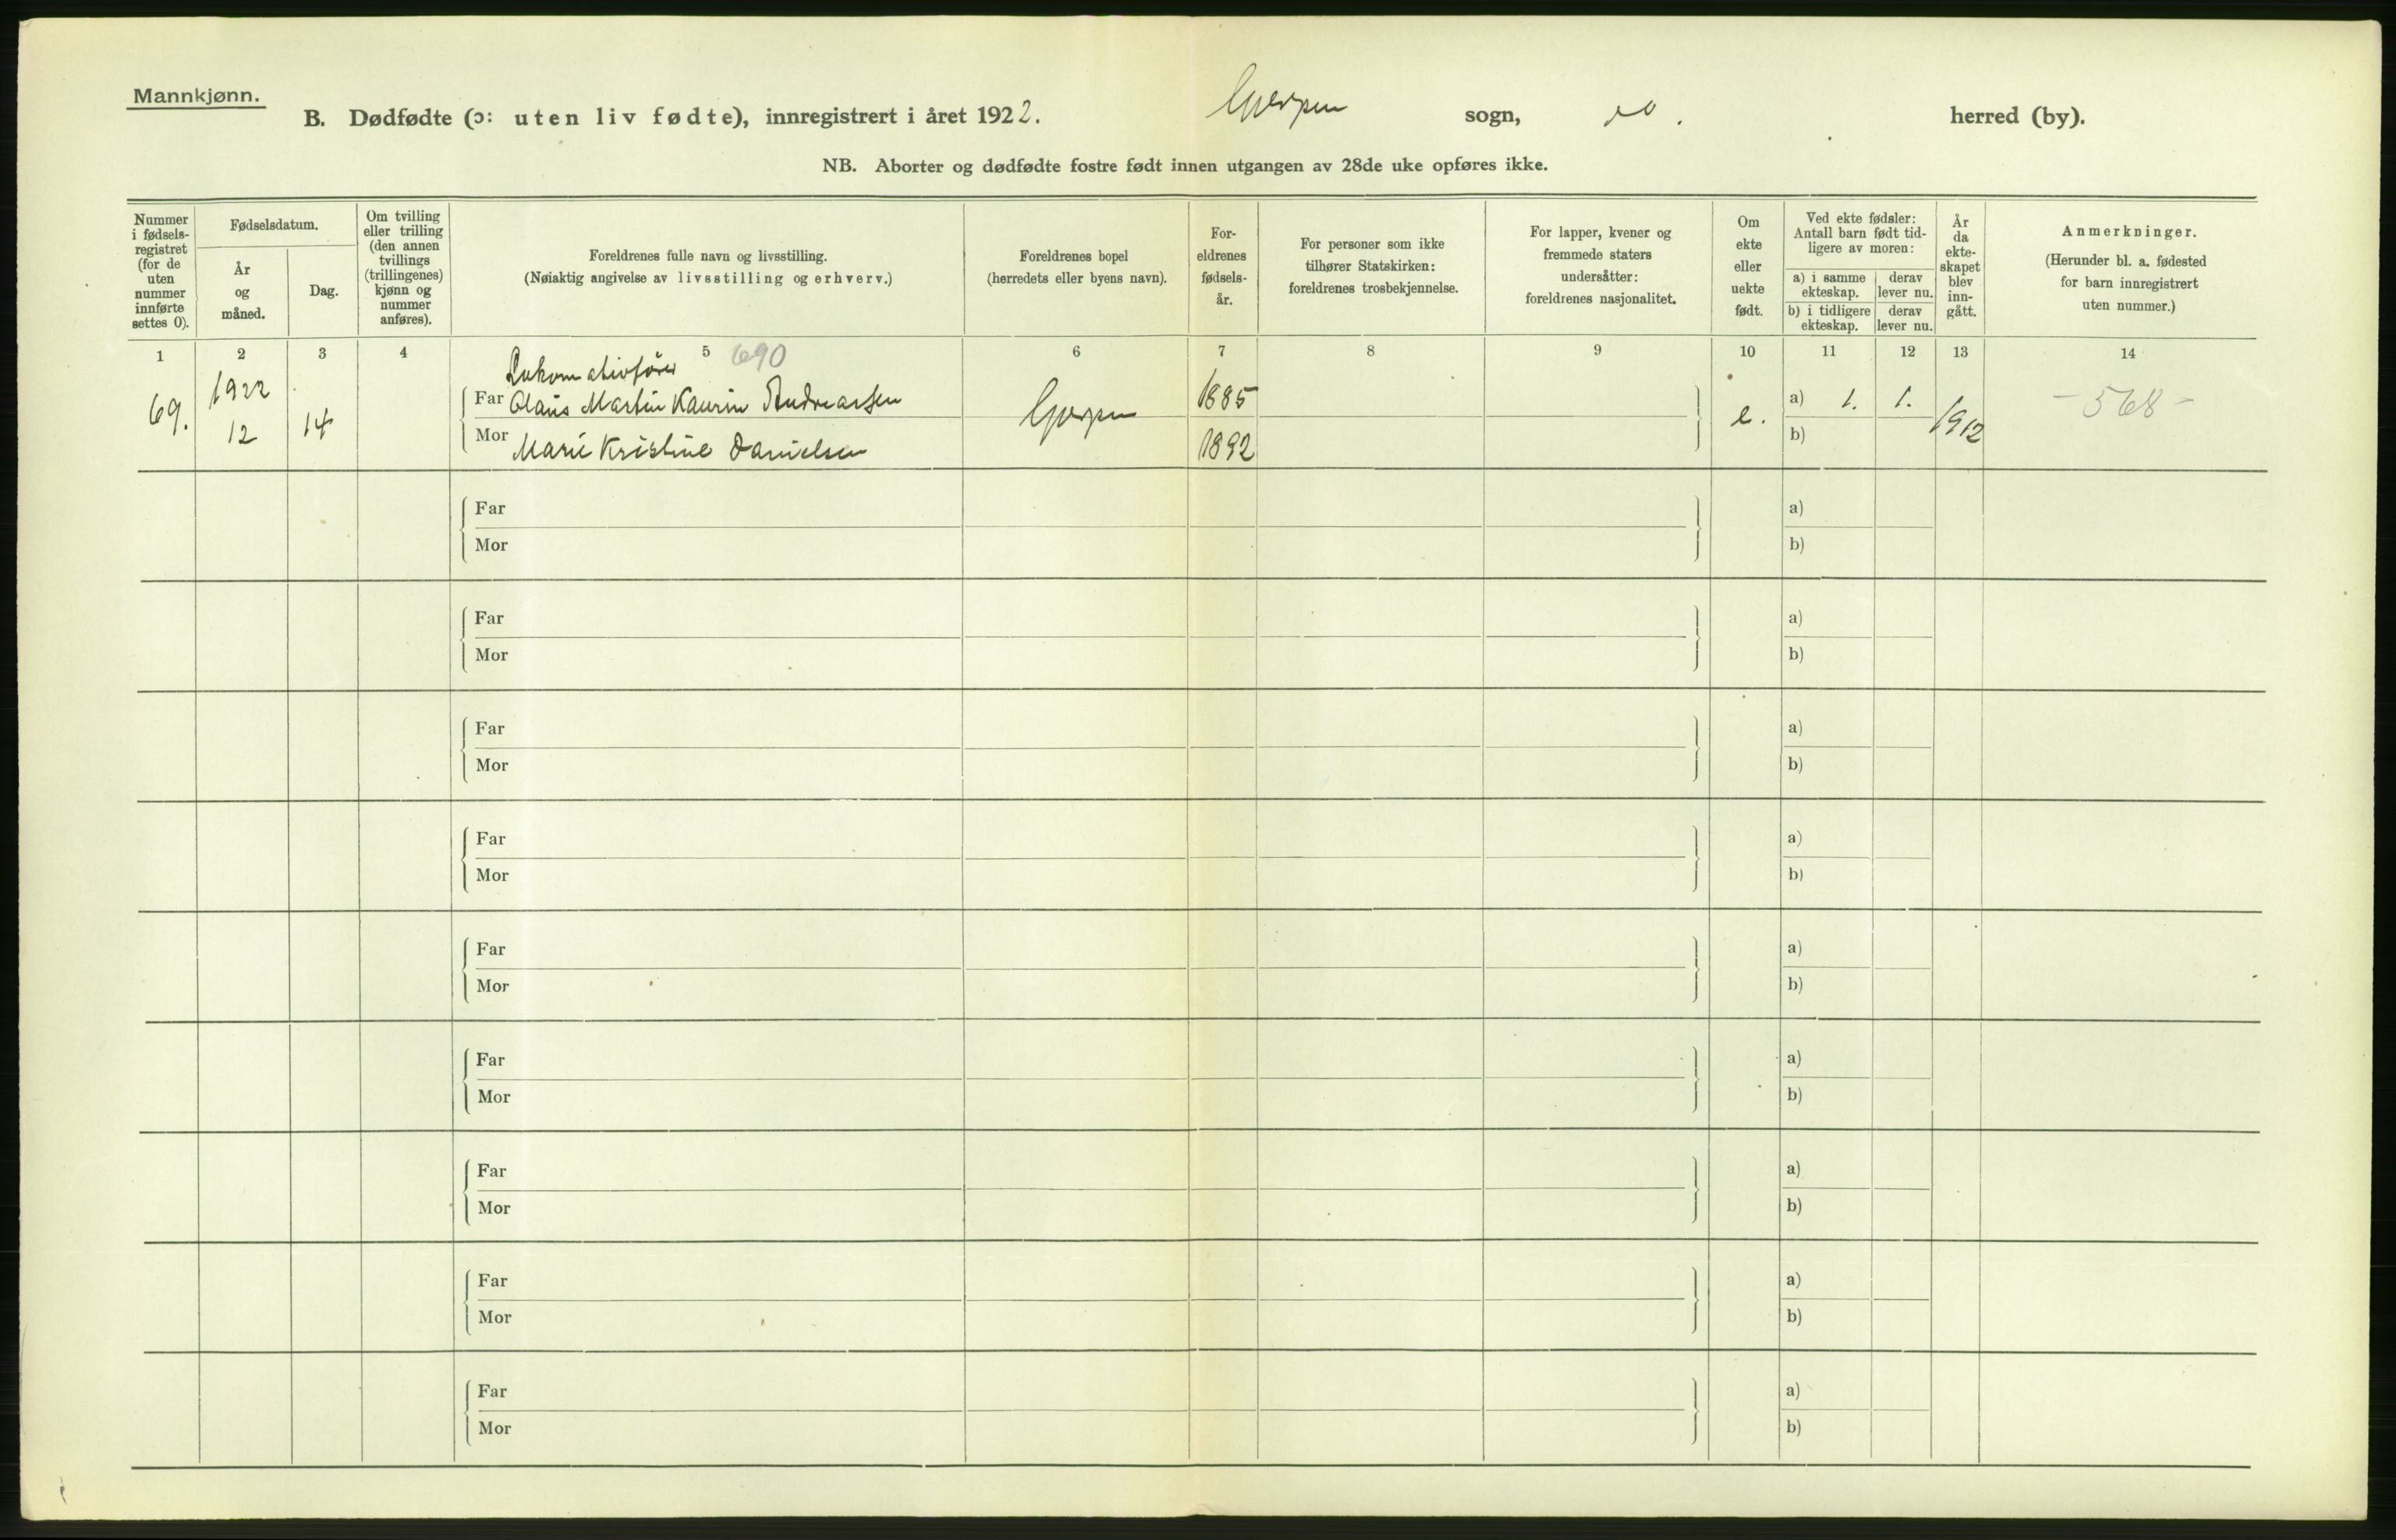 Mannkjønn.
B. Dødfødte (ɔ: uten liv fødte), innregistrert i året 1922. Gjerpen sogn, do. herred (by).
NB. Aborter og dødfødte fostre født innen utgangen av 28de uke opføres ikke.
Nummer i fødsels-registret (for de uten nummer innførte settes 0).
Fødselsdatum.
År og måned.
Dag.
Om tvilling eller trilling (den annen tvillings (trillingenes) kjønn og nummer anføres).
Foreldrenes fulle navn og livsstilling.
(Nøiaktig angivelse av livsstilling og erhverv.)
Foreldrenes bopel
(herredets eller byens navn).
For-eldrenes fødsels-år.
For personer som ikke tilhører Statskirken: foreldrenes trosbekjennelse.
For lapper, kvener og fremmede staters undersåtter: foreldrenes nasjonalitet.
Om ekte eller uekte født.
Ved ekte fødsler: Antall barn født tid-ligere av moren:
a) i samme ekteskap. derav lever nu.
b) i tidligere ekteskap. derav lever nu.
År da ekte-skapet blev inn-gått.
Anmerkninger.
(Herunder bl. a. fødested for barn innregistrert uten nummer.)
1 2 3 4 5 6 7 8 9 10 11 12 13 14
690
Lokomotivfører
69. 1922 12 14
Far Olaus Martin Kaurin Andreassen Gjerpen 1885 e. a) 1. 1. 1912 - 568 -
Mor Marie Kristine Danielsen 1892 b)
Far a)
Mor b)
Far a)
Mor b)
Far a)
Mor b)
Far a)
Mor b)
Far a)
Mor b)
Far a)
Mor b)
Far a)
Mor b)
Far a)
Mor b)
Far a)
Mor b)